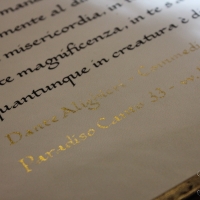 mente al di
misericordia, in
te magnificenza, in te s
quantunque in creatura è d
Dante Alighieri - Commedi
Paradiso Canto 33 -